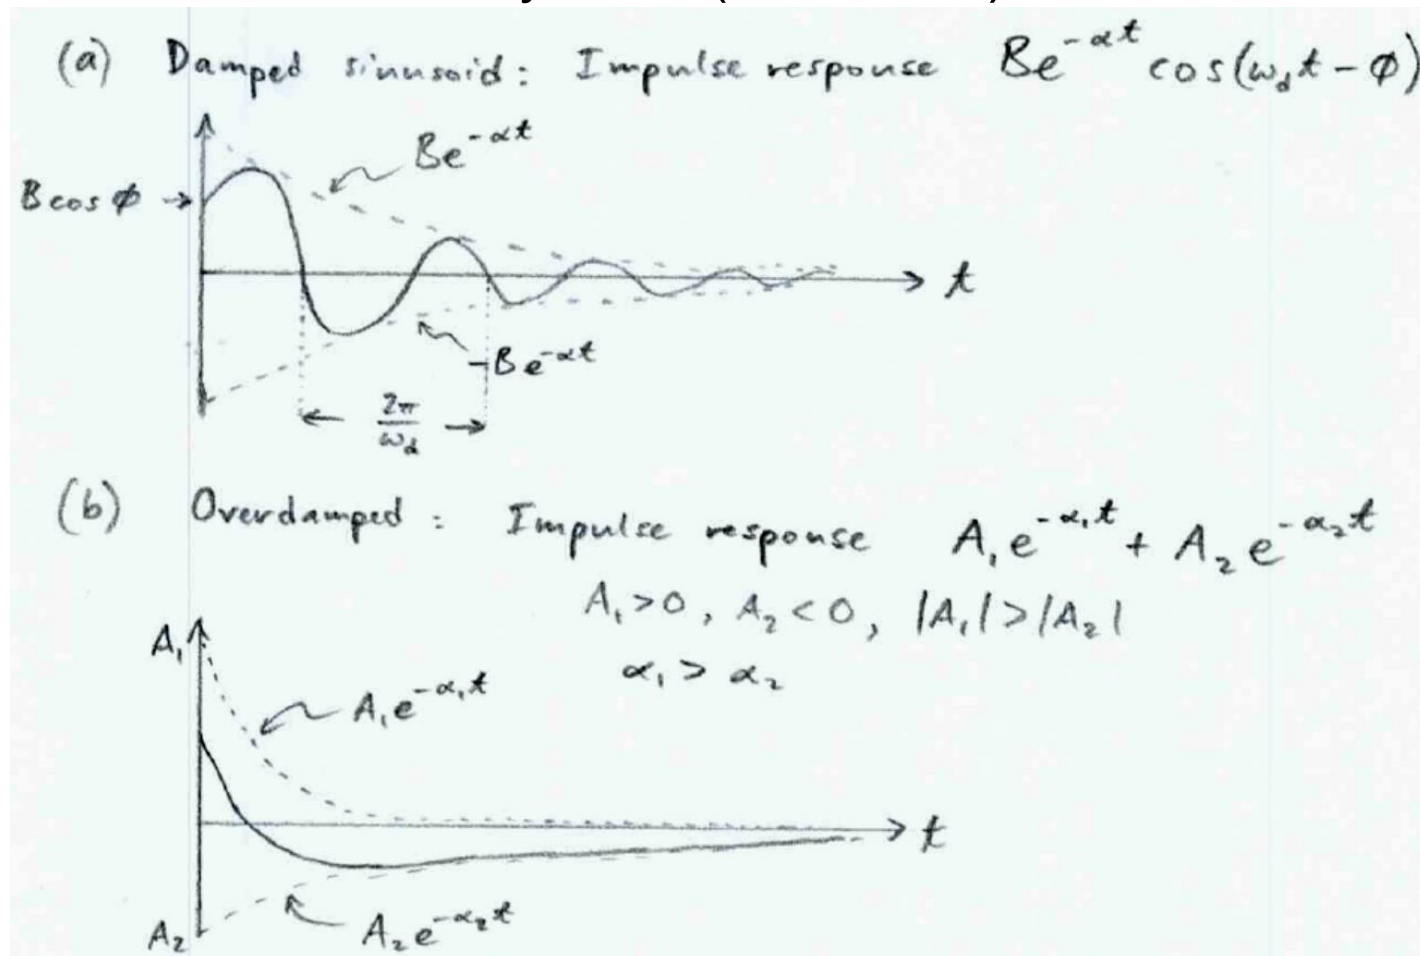 (a) Damped sinusoid: Impulse response Be^{-αt} cos(ω_d t - φ)
Be^{-αt}
B cos φ →
t
-Be^{-αt}
2π/ω_d
(b) Overdamped: Impulse response A₁e^{-α₁t} + A₂e^{-α₂t}
A₁>0, A₂<0, |A₁|>|A₂|
A₁
α₁ > α₂
A₁e^{-α₁t}
t
A₂
A₂e^{-α₂t}